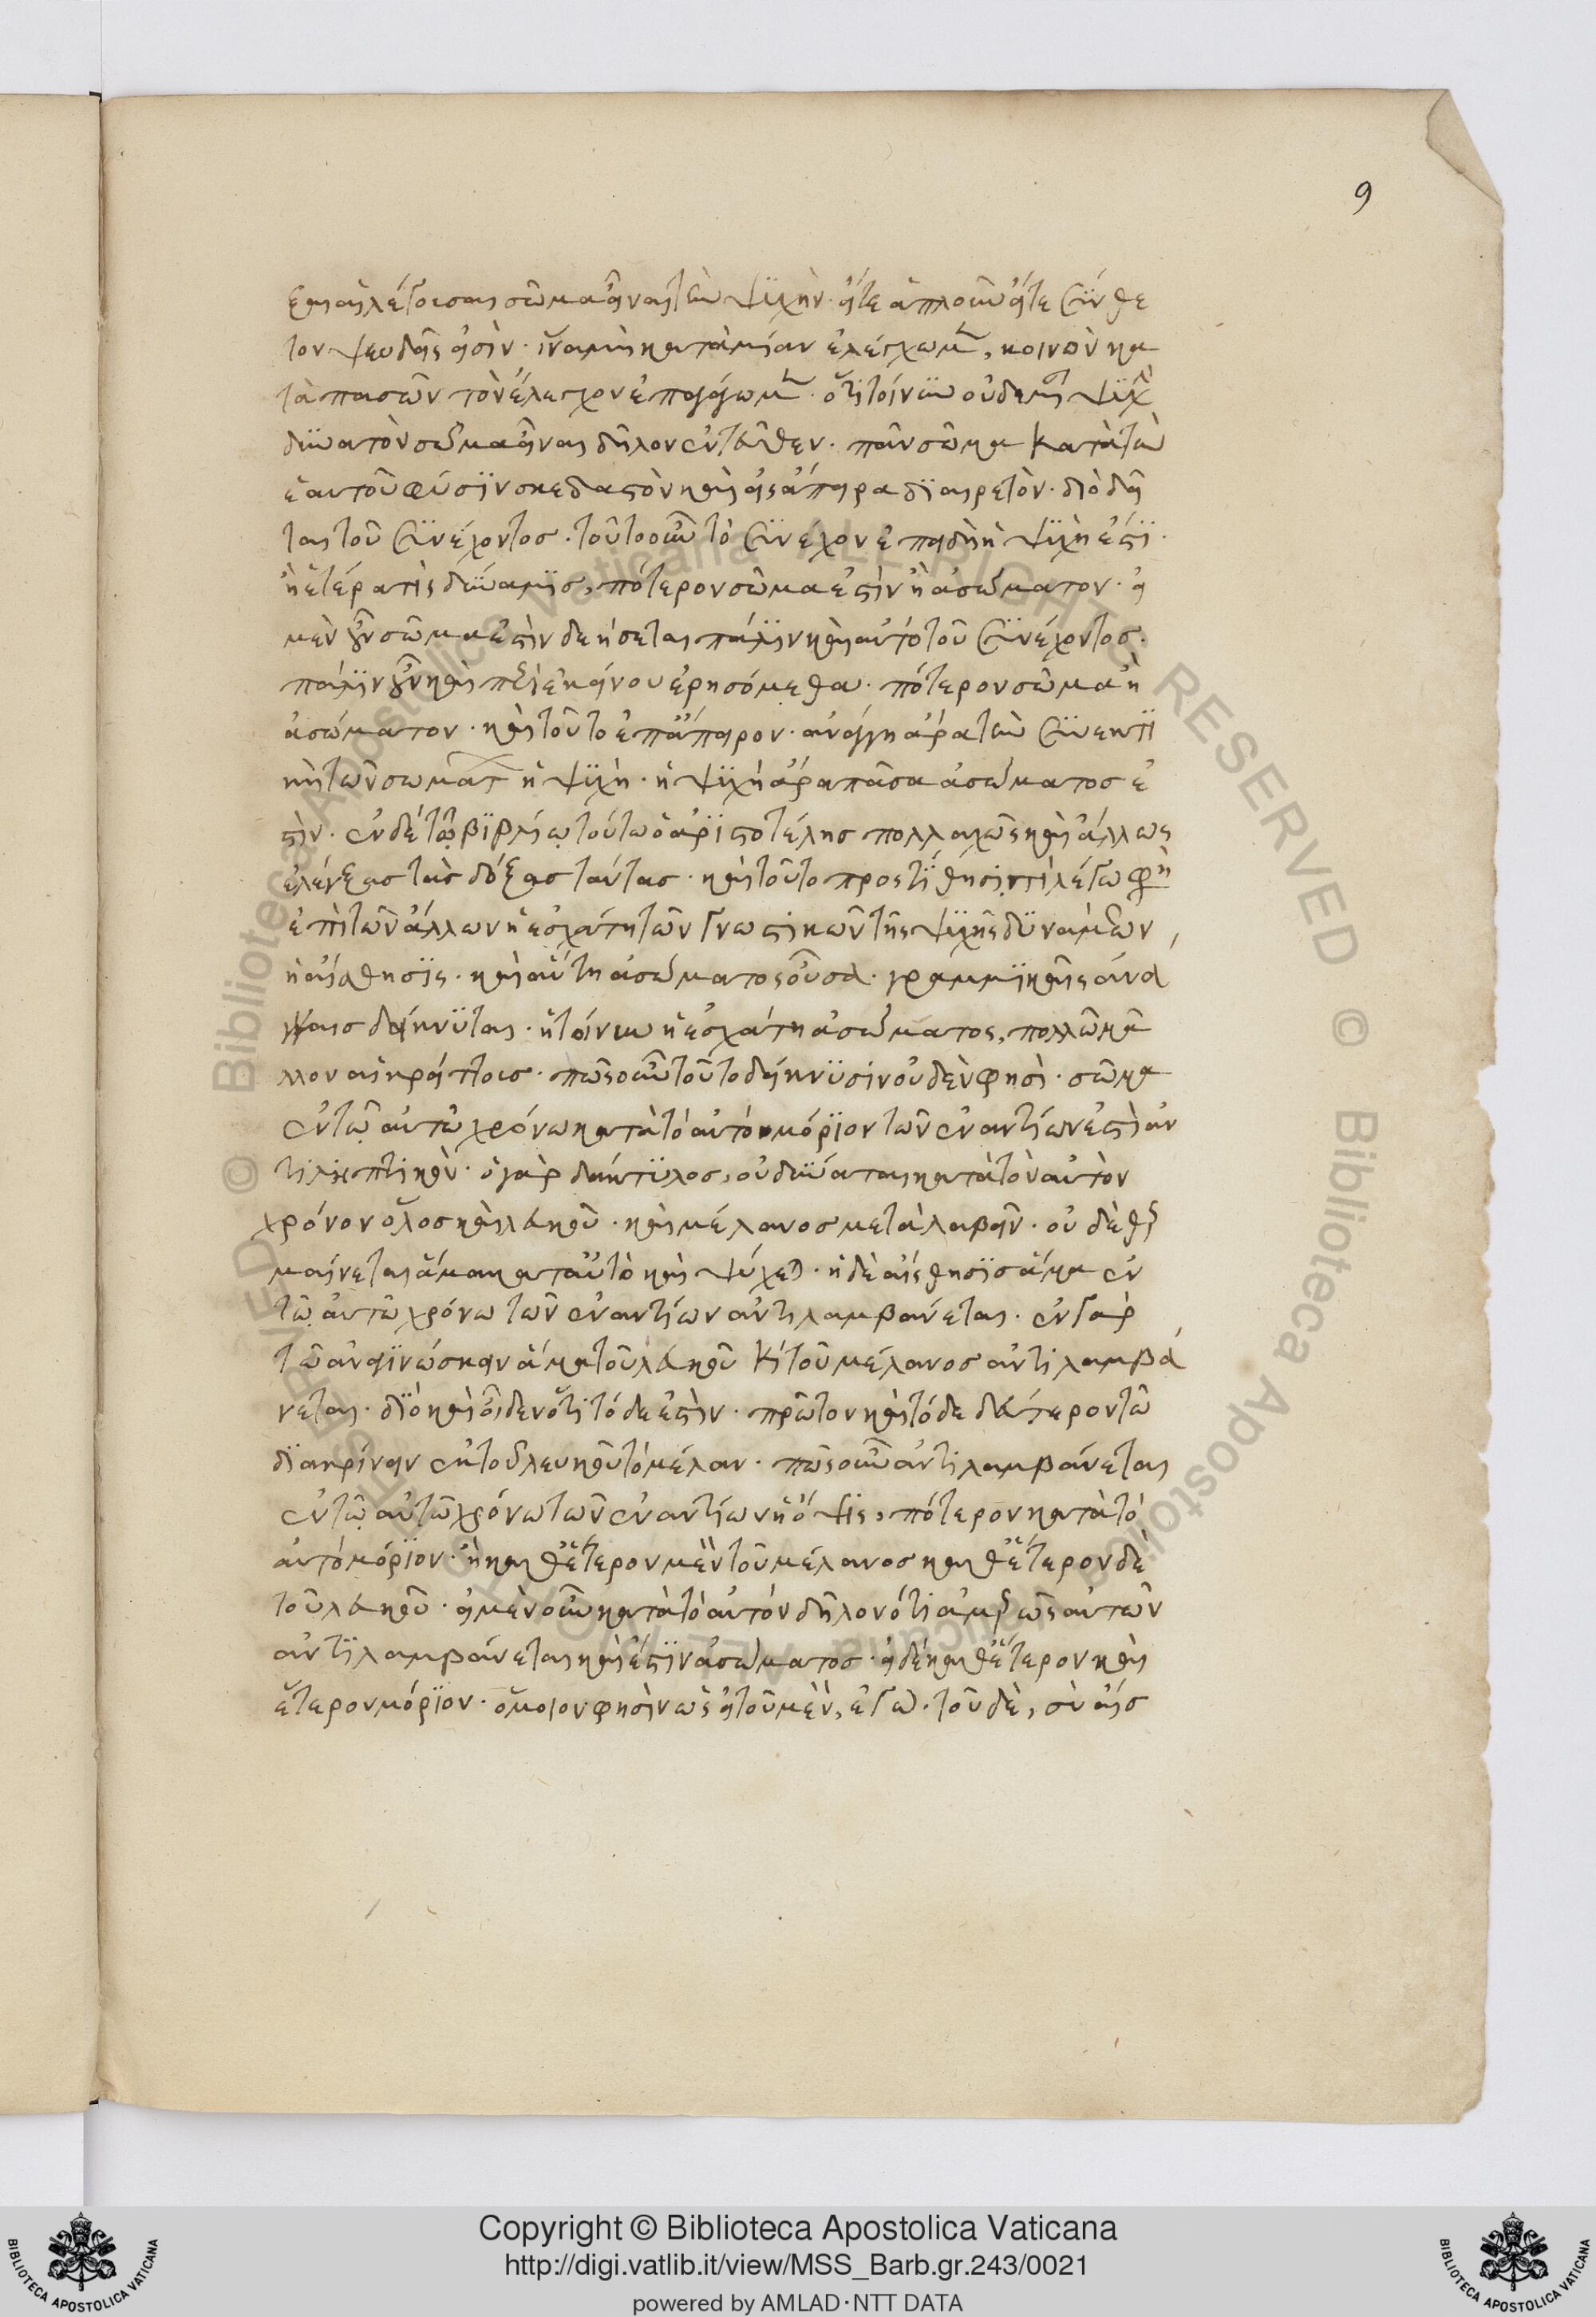 9
ξαι αἱ λέγουσαι σῶμα εἶναι τὴν ψυχὴν· εἴτε ἁπλοῦν εἴτε σύνθε
τον ψευδεῖς εἰσὶν· ἵνα μὴ κατὰ μίαν ἐλέγχωμεν, κοινὸν κα
τὰ πασῶν τὸν ἔλεγχον ἐπαγάγωμεν· ὅτι τοίνυν οὐδεμίαν ψυχὴν
δυνατὸν σῶμα εἶναι δῆλον ἐντεῦθεν· πᾶν σῶμα κατὰ τὴν
ἑαυτοῦ φύσιν σκεδαστὸν καὶ εἰς ἄπειρα διαιρετὸν· διὸ δεῖ
ται τοῦ συνέχοντος· τοῦτο οὖν τὸ συνέχον ἐπειδὴ ἢ ψυχὴ ἐστι·
ἢ ἑτέρα τὶς δύναμις, πότερον σῶμα ἐστὶν ἢ ἀσώματον· εἰ
μὲν οὖν σῶμα ἐστὶν δεήσεται πάλιν καὶ αὐτὸ τοῦ συνέχοντος·
πάλιν οὖν καὶ περὶ ἐκείνου ἐρησόμεθα· πότερον σῶμα ἢ
ἀσώματον· καὶ τοῦτο ἐπ ἄπειρον· ἀνάγκη ἄρα τὴν συνεκτι
κὴ τῶν σωμάτ ἡ ψυχὴ· ἡ ψυχὴ ἄρα πᾶσα ἀσώματος ἐ
στὶν· ἐν δὲ τῷ βιβλίῳ τούτω ὁ ἀριστοτέλης πολλαχῶς καὶ ἄλλως
ἐλέγξας τὰς δόξας ταύτας· καὶ τοῦτο προστίθησι τι λέγω
ἐπὶ τῶν ἄλλων ἡ ἐσχάτη τῶν γνωστικῶν τῆς ψυχῆς δυνάμεων
ἡ αἴσθησις· καὶ αὕτη ἀσώματος οὖσα· γραμμικαῖς ἀνά
γκαις δείκνυται· εἰ τοίνυν ἡ ἐσχάτη ἀσώματος, πολλῶ μᾶ
λλον αἱ κρείττους· πῶς οὖν τοῦτο δείκνυσιν οὐδὲν φησὶ· σῶμα
ἐν τῷ αὐτῶ χρόνω κατὰ τὸ αὐτὸ μόριον τῶν ἐναντίων ἐστὶ ἀν
τιληπτικὸν· ὁ γὰρ δάκτυλος, οὐ δύναται κατὰ τὸν αὐτὸν
χρόνον ὅλος καὶ λευκοῦ· καὶ μέλανος μεταλαβεῖν· οὐδὲ θερ
μαίνεται ἅμα κατ αὐτὸ καὶ ψύχεται· ἡ δὲ αἴσθησις ἅμα ἐν
τῷ αὐτῶ χρόνω τῶν ἐναντίων ἀντιλαμβάνεται· ἐν γὰρ
τῶ ἀναγινώσκειν ἅμα τοῦ λευκοῦ κ τοῦ μέλανος ἀντιλαμβά
νεται· διὸ καὶ οἶδεν ὅτι τόδε ἐστὶν· πρῶτον καὶ τόδε δεύτερον τῶ
διακρίνειν ἐκ τοῦ λευκοῦ τὸ μέλαν· πῶς οὖν ἀντιλαμβάνεται
ἐν τῷ αὐτῶ χρόνω τῶν ἐναντίων ἡ ὄψις, πότερον κατὰ τὸ
αὐτὸ μόριον· ἢ καθ ἕτερον μὲν τοῦ μέλανος καθ ἕτερον δὲ
τοῦ λευκοῦ· εἰ μὲν οὖν κατὰ τὸ αὐτὸν δῆλον ὅτι ἀμερῶς αὐτῶν
ἀντιλαμβάνεται καὶ ἐστιν ἀσώματος· εἰ δὲ καθ ἕτερον καὶ
ἕτερον μόριον· ὅμοιον φησὶν ὡς εἰ τοῦ μὲν, ἐγὼ· τοῦ δὲ, σὺ αἴσ
Copyright © Biblioteca Apostolica Vaticana
http://digi.vatlib.it/view/MSS_Barb.gr.243/0021
powered by AMLAD·NTT DATA